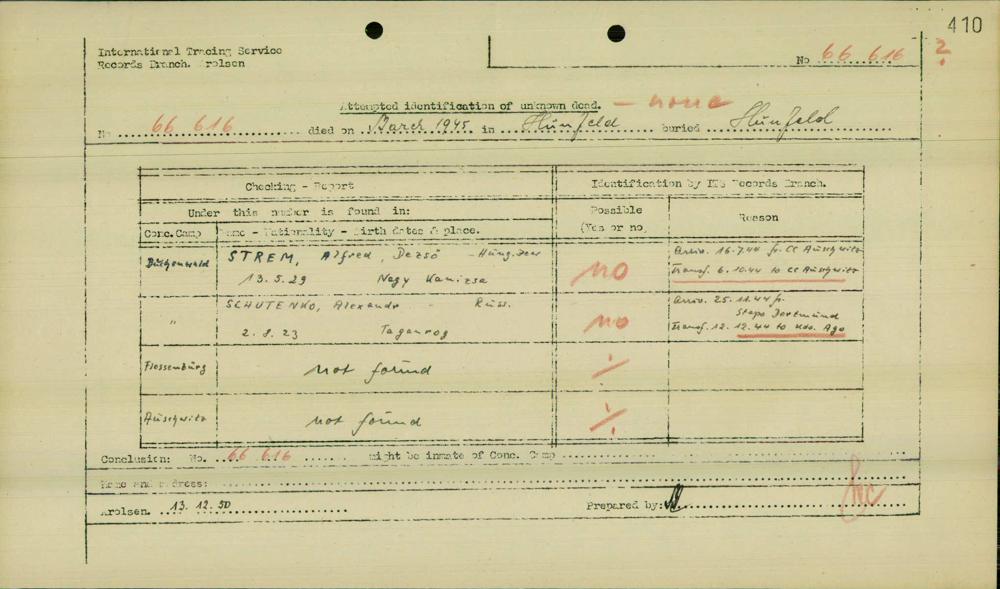 410
International Tracing Service
Records Branch. Arolsen
No 66 616 ?
Attempted identification of unknown dead. - none
No 66 616 died on March 1945 in Hünfeld buried Hünfeld
Checking - Report
Identification by ITS Records Branch.
Under this number is found in:
Possible
(Yes or no,
Reason
Conc. Camp
Name - Nationality - Birth dates & place.
Buchenwald
STREM, Alfred, Dezsö - Hung. Jew
13.5.29 Nagy Kanizsa
no
Arriv. 16.7.44 fr. CC Auschwitz
Transf. 6.10.44 to CC Auschwitz
"
SCHUTENKO, Alexandr - Russ.
2.8.23 Taganrog
no
Arriv. 25.11.44 fr.
Stapo Dortmund
Transf. 12.12.44 to Kdo. Ago
Flossenbürg
not found
÷
Auschwitz
not found
÷
Conclusion: No. 66 616 might be inmate of Conc. Camp
Name and address:
Arolsen. 13.12.50
Prepared by: